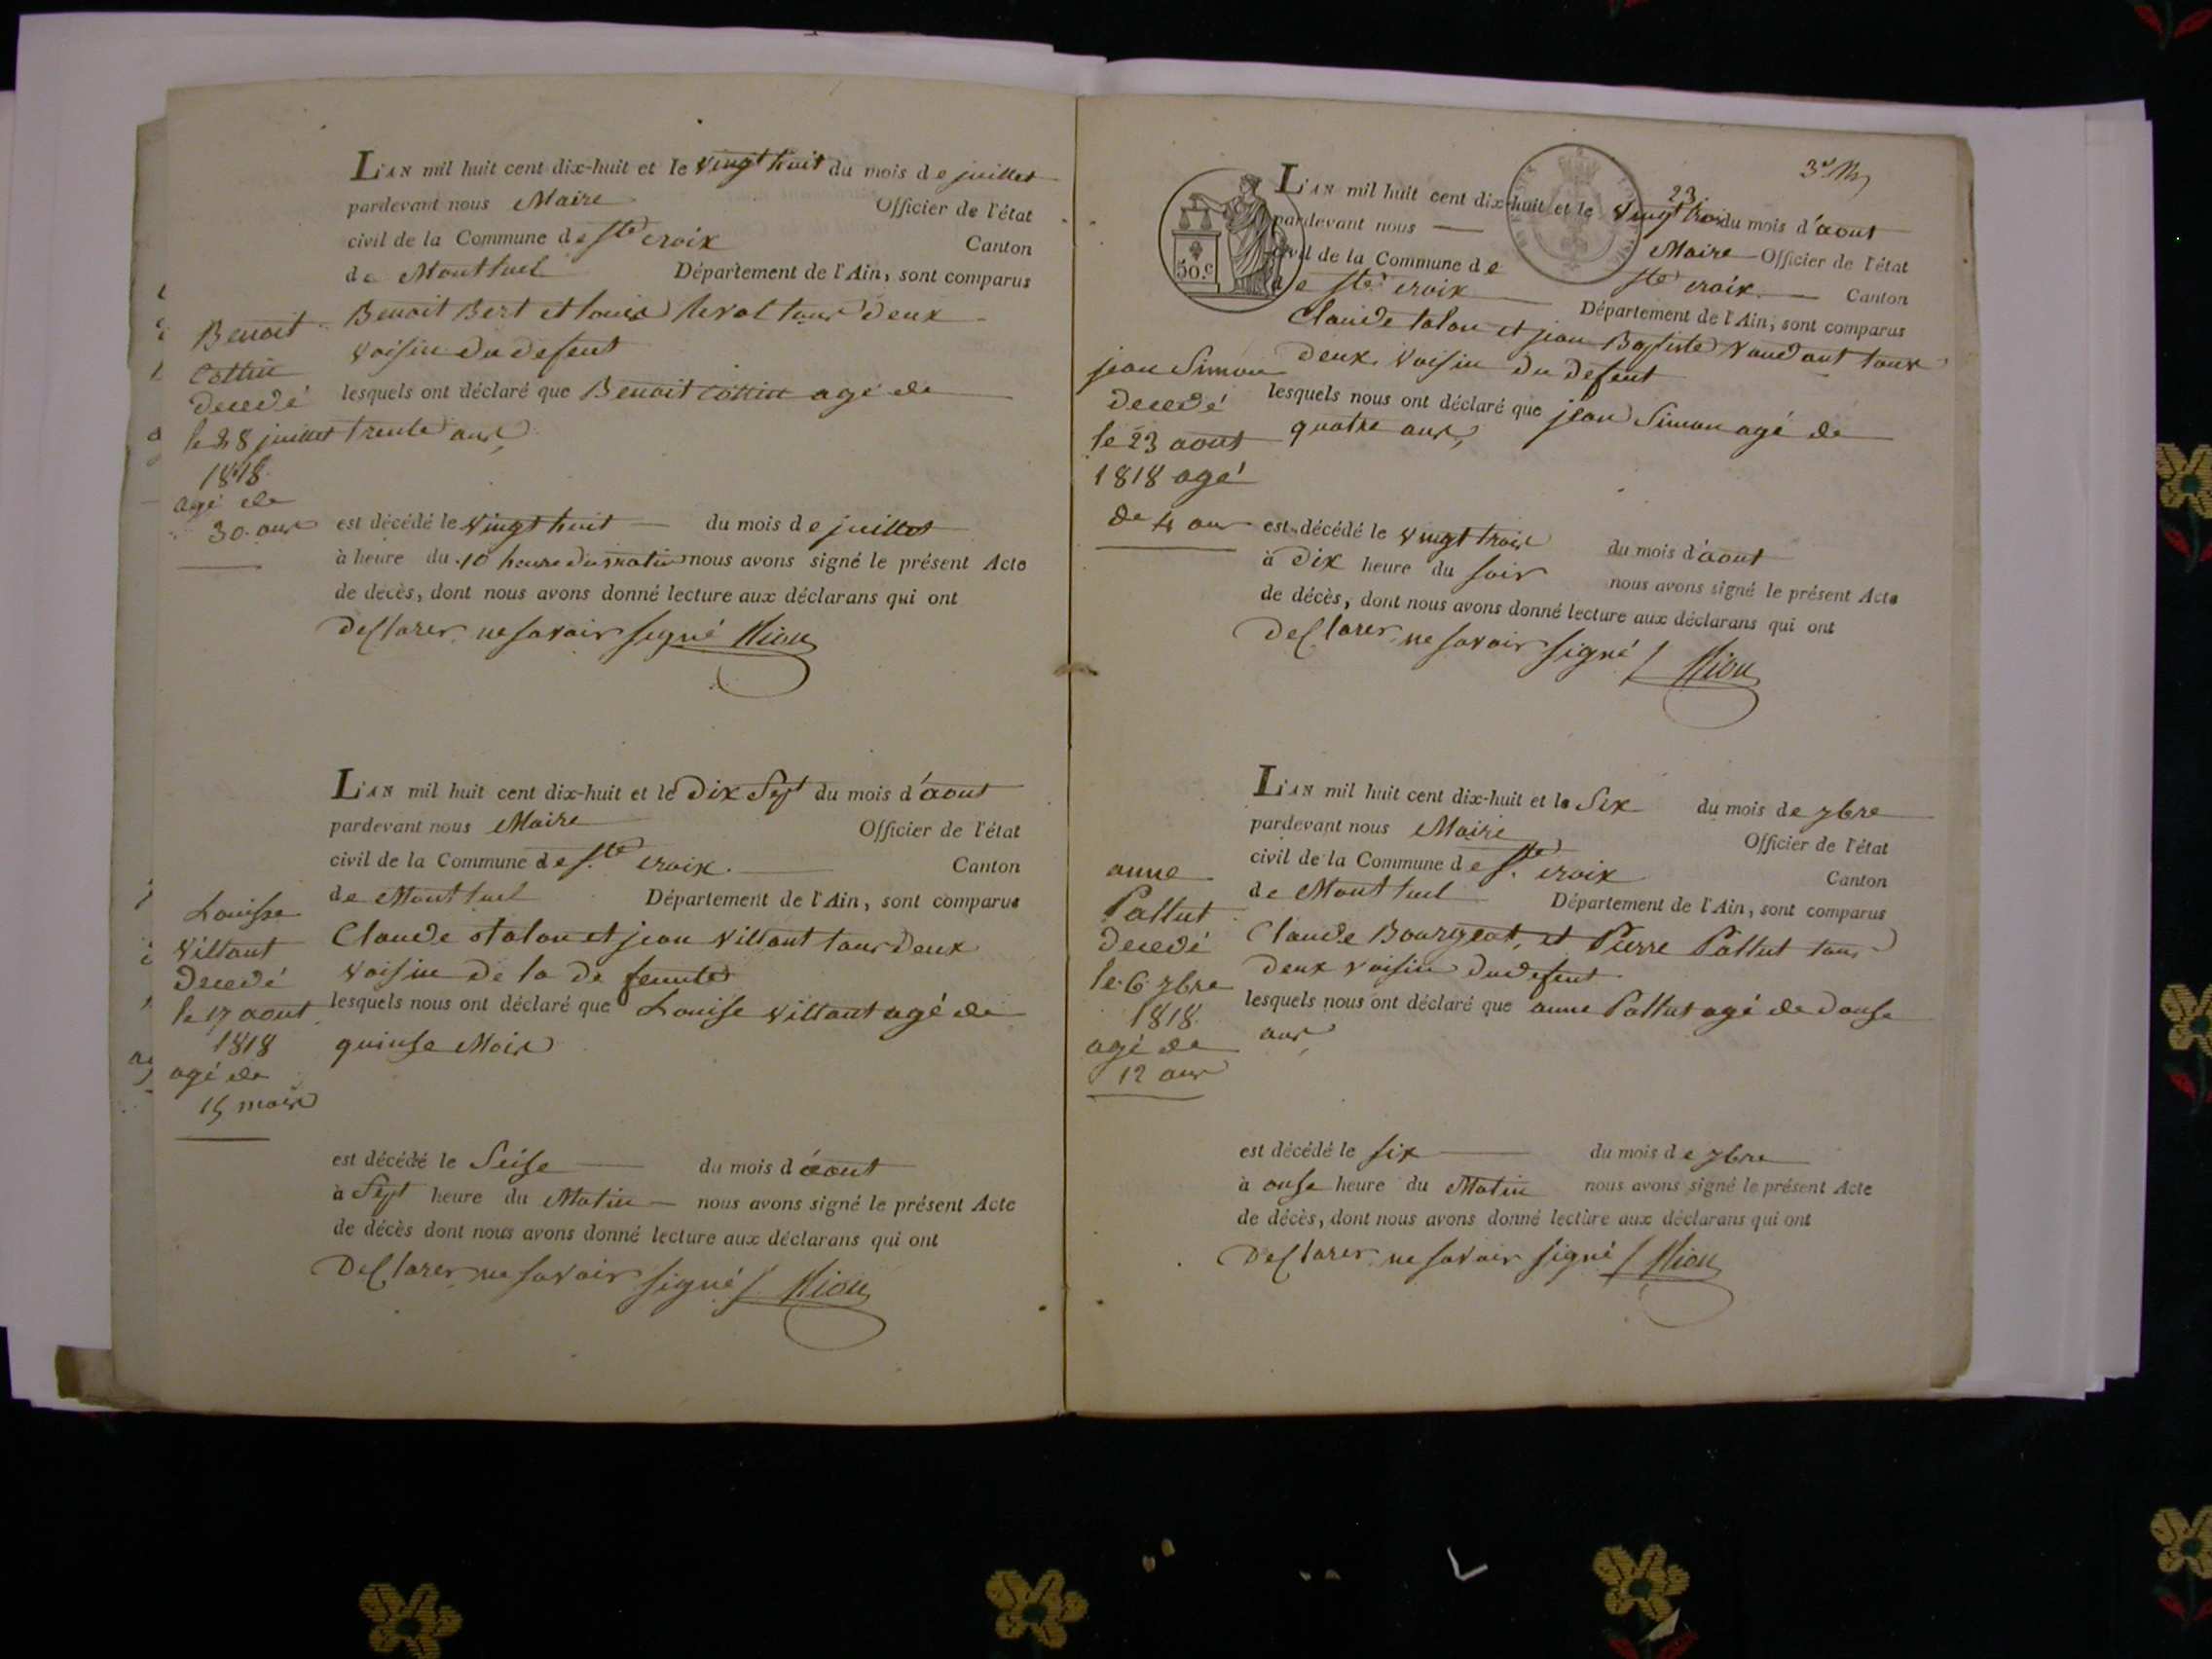 L'AN mil huit cent dix-huit et le vingt huit du mois de juillet
pardevant nous Maire Officier de l'état
civil de la Commune de Ste croix Canton
de Montluel Département de l'Ain, sont comparus
Benoit Bert et louis tous deux
voisin du defent
lesquels ont déclaré que Benoit Cottin agé de
trente ans
Benoit
Cottin
decedé
le 28 juillet
1818
agé de
30 ans
est décédé le vingt huit du mois de juillet
à heure du 10 heure du matin nous avons signé le présent Acte
de décès, dont nous avons donné lecture aux déclarans qui ont
declarer ne savoir signé
L'AN mil huit cent dix-huit et le dix sept du mois d'aout
pardevant nous Maire Officier de l'état
civil de la Commune de Ste croix Canton
de Montluel Département de l'Ain, sont comparus
Claude talon et jean villant tous deux
voisin de la de
lesquels nous ont déclaré que Louise villant agé de
quinse Mois
Louisse
villant
decedé
le 17 aout
1818
agé de
15 mois
est décédé le Seise du mois d'aout
à Sept heure du Matin nous avons signé le présent Acte
de décès dont nous avons donné lecture aux déclarans qui ont
declarer ne savoir signé
50.c
L'AN mil huit cent dix-huit et le vingt trois du mois d'aout
23
pardevant nous Maire Officier de l'état
civil de la Commune de Ste croix Canton
de Ste croix Département de l'Ain, sont comparus
Claude talon et jean Baptiste vaudant tous
deux voisin du defent
lesquels nous ont déclaré que jean Simon agé de
quatre ans,
jean Simon
decedé
le 23 aout
1818 agé
de 4 ans
est décédé le vingt trois du mois d'aout
à dix heure du soir nous avons signé le présent Acte
de décès, dont nous avons donné lecture aux déclarans qui ont
declarer ne savoir signé
L'AN mil huit cent dix-huit et le Six du mois de 7bre
pardevant nous Maire Officier de l'état
civil de la Commune de Ste croix Canton
de Montluel Département de l'Ain, sont comparus
Claude Bourgeat, et Pierre Pallut tous
deux voisin du defent
lesquels nous ont déclaré que anne Pallut agé de douse
ans
anne
Pallut
decedé
le 6 7bre
1818
agé de
12 ans
est décédé le six du mois de 7bre
à onse heure du Matin nous avons signé le présent Acte
de décès, dont nous avons donné lecture aux déclarans qui ont
declarer ne savoir signé